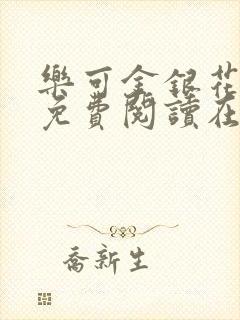 樂可金銀花
免費閱讀在
喬新生